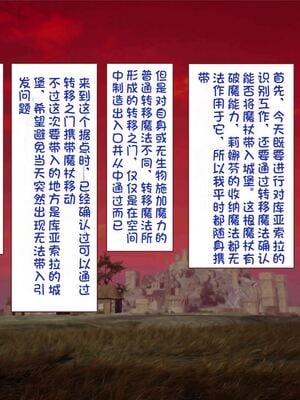 首先，今天既要进行对库亚索拉的
识别工作，还要通过转移魔法确认
能否将魔杖带入城堡，这根魔杖有
破魔能力，莉娜芬的收纳魔法都无
法作用于它，所以我平时都随身携
带
但是对自身或无生物施加魔力的
普通转移魔法不同，转移魔法所
形成的转移之门，仅仅是在空间
中制造出入口并从中通过而已
来到这个据点时…已经确认过可以通过
转移之门携带魔杖移动
不过这次要带入的地方是库亚索拉的城
堡，希望避免当天突然出现无法带入引
发问题